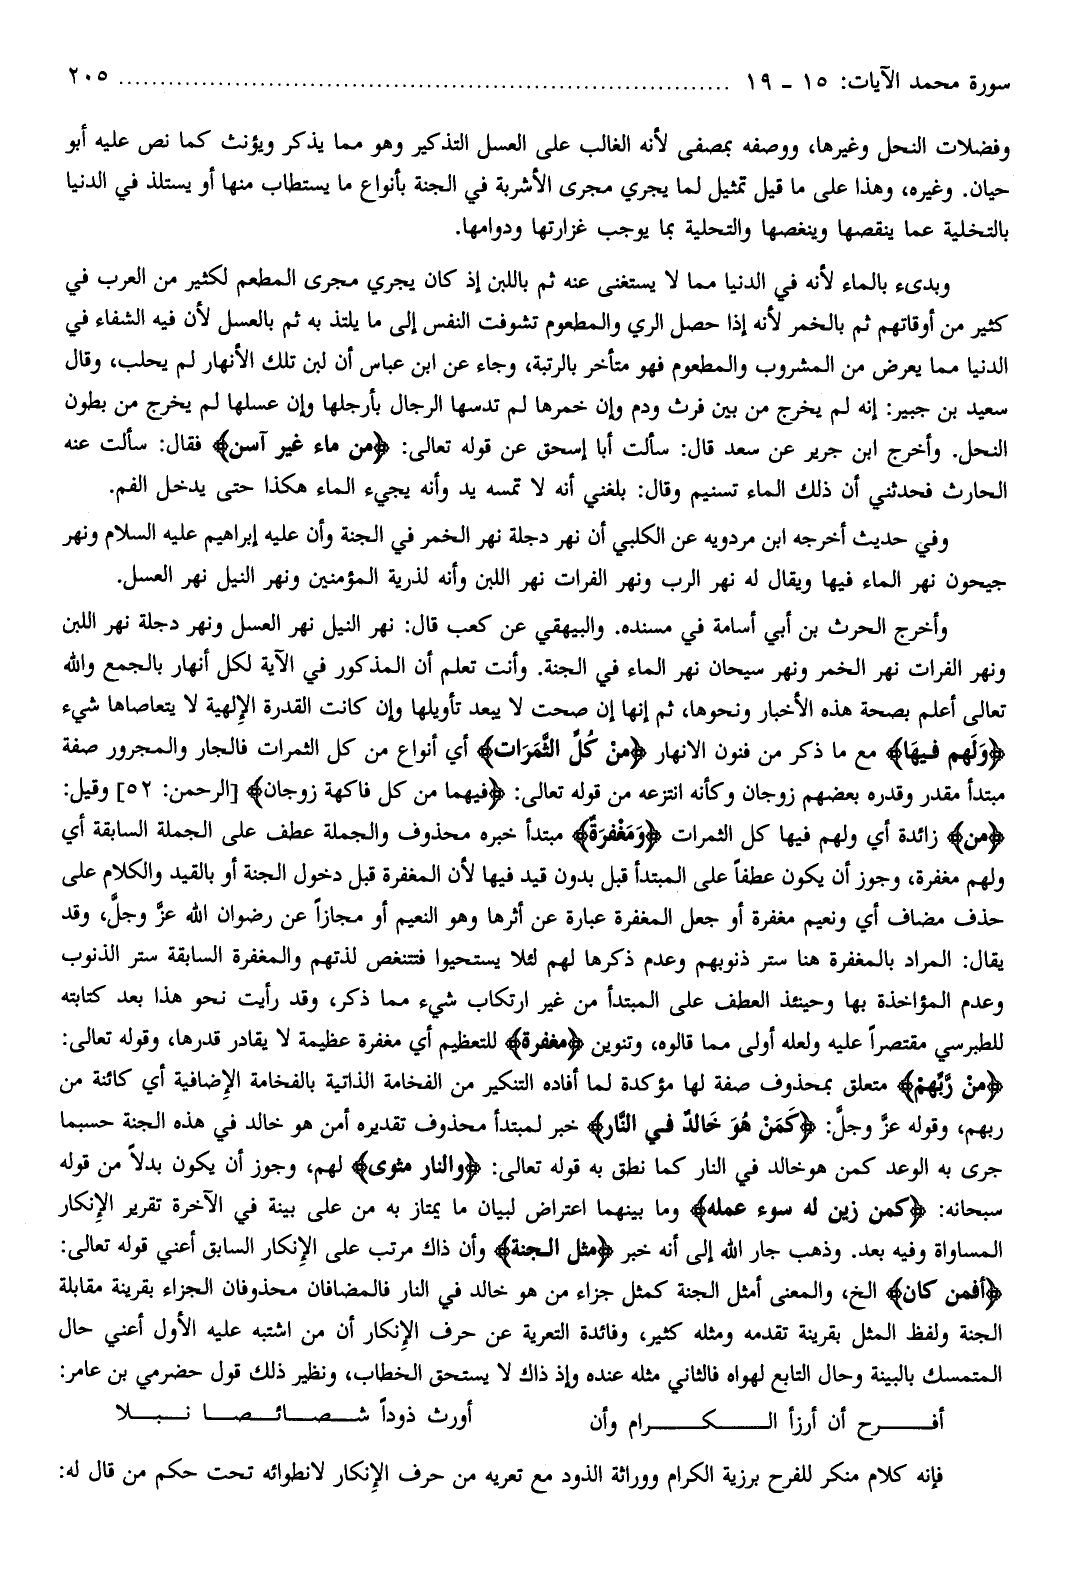 سورة محمد الآيات: ١٥ - ١٩ ........................................................................ ٢٠٥
وفضلات النحل وغيرها، ووصفه بمصفى لأنه الغالب على العسل التذكير وهو مما يذكر ويؤنث كما نص عليه أبو
حيان. وغيره، وهذا على ما قيل تمثيل لما يجري مجرى الأشربة في الجنة بأنواع ما يستطاب منها أو يستلذ في الدنيا
بالتخلية عما ينقصها وينغصها والتحلية بما يوجب غزارتها ودوامها.
وبدىء بالماء لأنه في الدنيا مما لا يستغنى عنه ثم باللبن إذ كان يجري مجرى المطعم لكثير من العرب في
كثير من أوقاتهم ثم بالخمر لأنه إذا حصل الري والمطعوم تشوفت النفس إلى ما يلتذ به ثم بالعسل لأن فيه الشفاء في
الدنيا مما يعرض من المشروب والمطعوم فهو متأخر بالرتبة، وجاء عن ابن عباس أن لبن تلك الأنهار لم يحلب، وقال
سعيد بن جبير: إنه لم يخرج من بين فرث ودم وإن خمرها لم تدسها الرجال بأرجلها وإن عسلها لم يخرج من بطون
النحل. وأخرج ابن جرير عن سعد قال: سألت أبا إسحق عن قوله تعالى: ﴿من ماء غير آسن﴾ فقال: سألت عنه
الحارث فحدثني أن ذلك الماء تسنيم وقال: بلغني أنه لا تمسه يد وأنه يجيء الماء هكذا حتى يدخل الفم.
وفي حديث أخرجه ابن مردويه عن الكلبي أن نهر دجلة نهر الخمر في الجنة وأن عليه إبراهيم عليه السلام ونهر
جيحون نهر الماء فيها ويقال له نهر الرب ونهر الفرات نهر اللبن وأنه لذرية المؤمنين ونهر النيل نهر العسل.
وأخرج الحرث بن أبي أسامة في مسنده. والبيهقي عن كعب قال: نهر النيل نهر العسل ونهر دجلة نهر اللبن
ونهر الفرات نهر الخمر ونهر سيحان نهر الماء في الجنة. وأنت تعلم أن المذكور في الآية لكل أنهار بالجمع والله
تعالى أعلم بصحة هذه الأخبار ونحوها، ثم إنها إن صحت لا يبعد تأويلها وإن كانت القدرة الإلهية لا يتعاصاها شيء
﴿وَلَهم فيهَا﴾ مع ما ذكر من فنون الانهار ﴿منْ كُلِّ الثَّمَرَات﴾ أي أنواع من كل الثمرات فالجار والمجرور صفة
مبتدأ مقدر وقدره بعضهم زوجان وكأنه انتزعه من قوله تعالى: ﴿فيهما من كل فاكهة زوجان﴾ [الرحمن: ٥٢] وقيل:
﴿من﴾ زائدة أي ولهم فيها كل الثمرات ﴿وَمَغْفرَةٌ﴾ مبتدأ خبره محذوف والجملة عطف على الجملة السابقة أي
ولهم مغفرة، وجوز أن يكون عطفاً على المبتدأ قبل بدون قيد فيها لأن المغفرة قبل دخول الجنة أو بالقيد والكلام على
حذف مضاف أي ونعيم مغفرة أو جعل المغفرة عبارة عن أثرها وهو النعيم أو مجازاً عن رضوان الله عزَّ وجلَّ، وقد
يقال: المراد بالمغفرة هنا ستر ذنوبهم وعدم ذكرها لهم لئلا يستحيوا فتتنغص لذتهم والمغفرة السابقة ستر الذنوب
وعدم المؤاخذة بها وحينئذ العطف على المبتدأ من غير ارتكاب شيء مما ذكر، وقد رأيت نحو هذا بعد كتابته
للطبرسي مقتصراً عليه ولعله أولى مما قالوه، وتنوين ﴿مغفرة﴾ للتعظيم أي مغفرة عظيمة لا يقادر قدرها، وقوله تعالى:
﴿منْ رَّبِّهمْ﴾ متعلق بمحذوف صفة لها مؤكدة لما أفاده التنكير من الفخامة الذاتية بالفخامة الإضافية أي كائنة من
ربهم، وقوله عزَّ وجلَّ: ﴿كَمَنْ هُوَ خَالدٌ في النَّار﴾ خبر لمبتدأ محذوف تقديره أمن هو خالد في هذه الجنة حسبما
جرى به الوعد كمن هوخالد في النار كما نطق به قوله تعالى: ﴿والنار مثوى﴾ لهم، وجوز أن يكون بدلاً من قوله
سبحانه: ﴿كمن زين له سوء عمله﴾ وما بينهما اعتراض لبيان ما يمتاز به من على بينة في الآخرة تقرير الإنكار
المساواة وفيه بعد. وذهب جار الله إلى أنه خبر ﴿مثل الجنة﴾ وأن ذاك مرتب على الإنكار السابق أعني قوله تعالى:
﴿أفمن كان﴾ الخ، والمعنى أمثل الجنة كمثل جزاء من هو خالد في النار فالمضافان محذوفان الجزاء بقرينة مقابلة
الجنة ولفظ المثل بقرينة تقدمه ومثله كثير، وفائدة التعرية عن حرف الإنكار أن من اشتبه عليه الأول أعني حال
المتمسك بالبينة وحال التابع لهواه فالثاني مثله عنده وإذ ذاك لا يستحق الخطاب، ونظير ذلك قول حضرمي بن عامر:
أفـــرح أن أرزأ الـــكـــرام وأن أورث ذوداً شـصـائـصـا نـبـلا
فإنه كلام منكر للفرح برزية الكرام ووراثة الذود مع تعريه من حرف الإنكار لانطوائه تحت حكم من قال له: